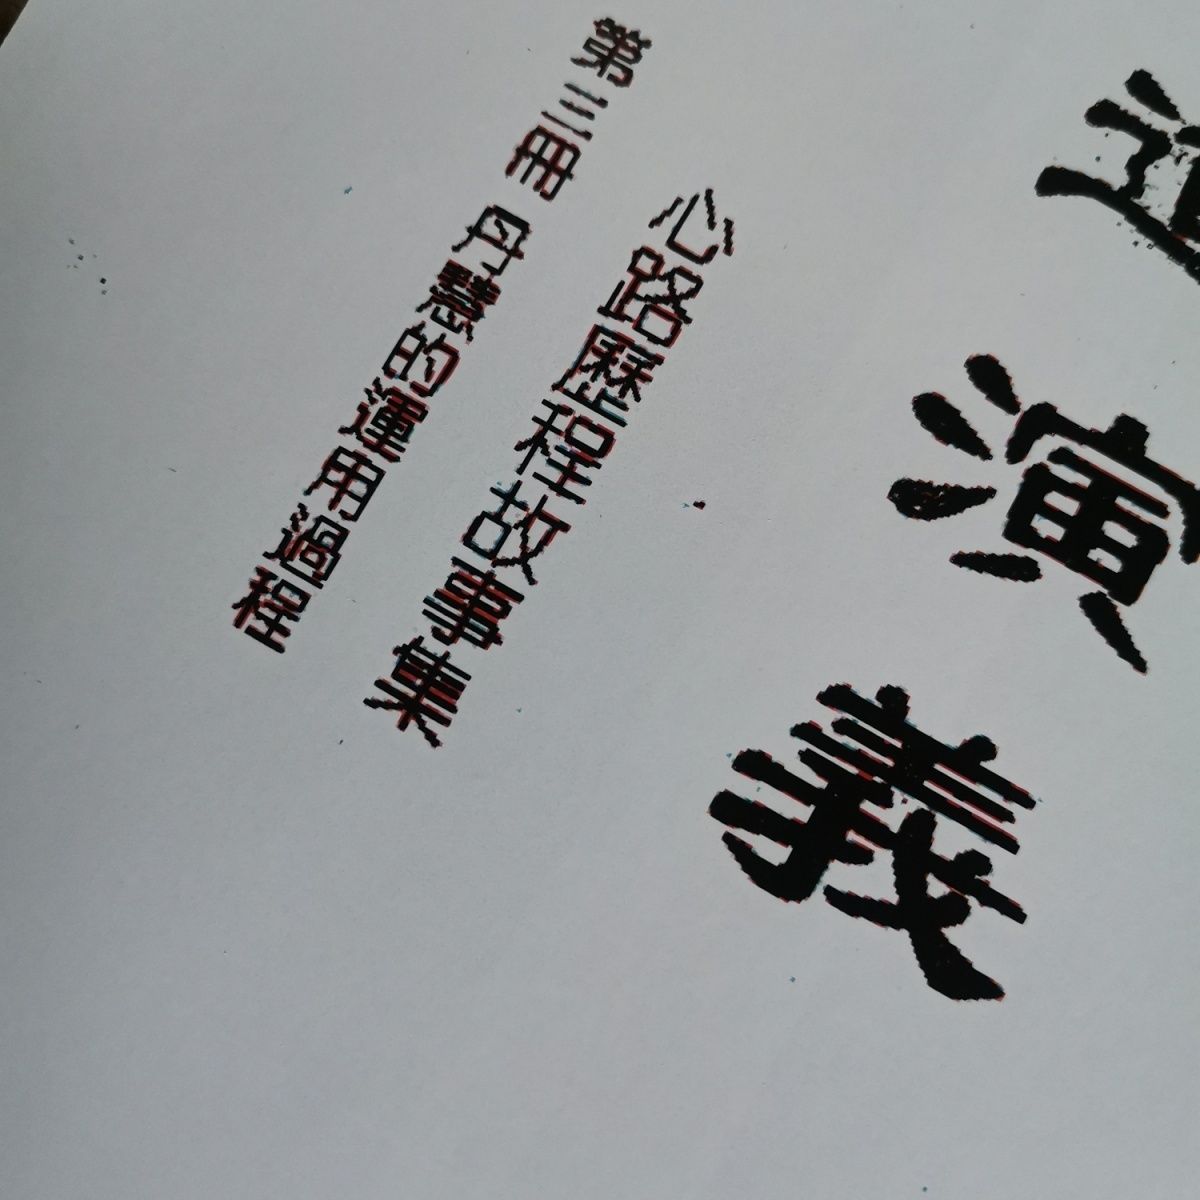 演義
心路歷程故事集
第三冊 丹慧的運用過程